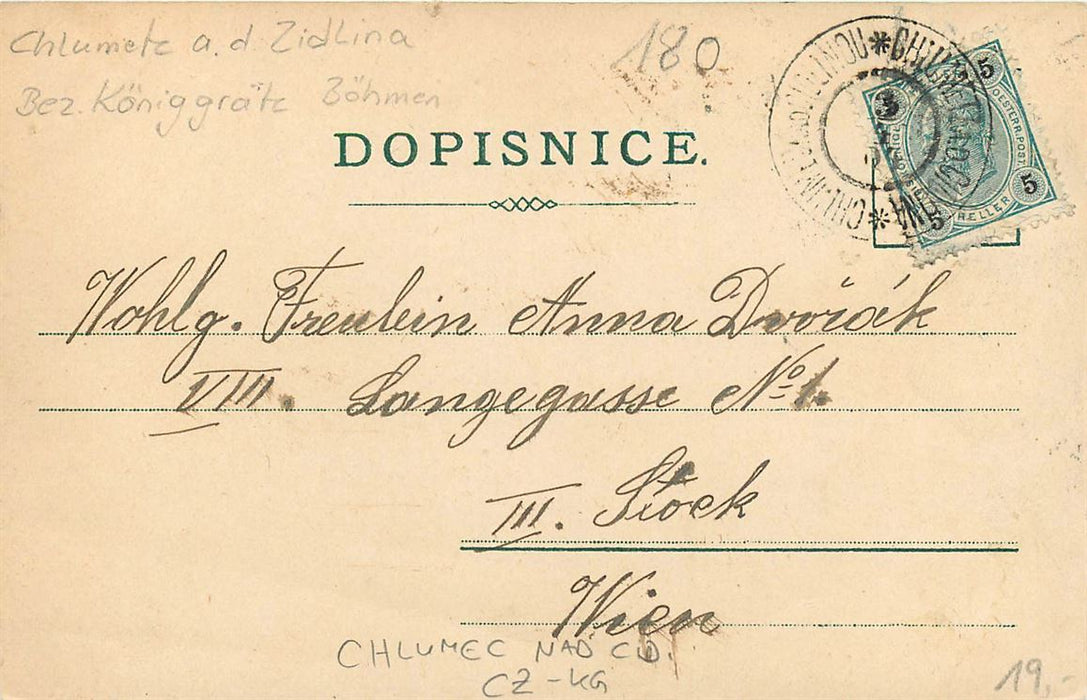 Chlumetz a.d. Zidlina
Bez. Königgrätz Böhmen
180
DOPISNICE.
CHLUMETZ A.D. CIDLINA * CHLUMEC NAD CIDLINOU *
5
5
5
OESTERR. POST.
HELLER
Wohlg. Freulein Anna Dvořák
VIII. Langegasse No 1.
III. Stock
Wien
CHLUMEC NAD CID.
CZ-KG
19.-